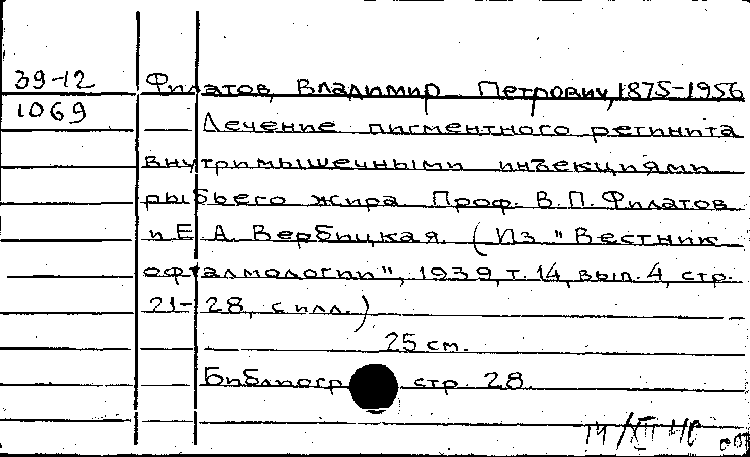 39-12 Филатов, Владимир Петрович, 1875-1956
1069 Лечение пигментного ретинита
внутримышечными инъекциями
рыбьего жира Проф. В.П. Филатов
и Е.А. Вербицкая. (Из "Вестник
офталмологии", 1939, т. 14, вып. 4, стр.
21-28, с илл.)
25 см.
Библиогр стр. 28
14/XII 40